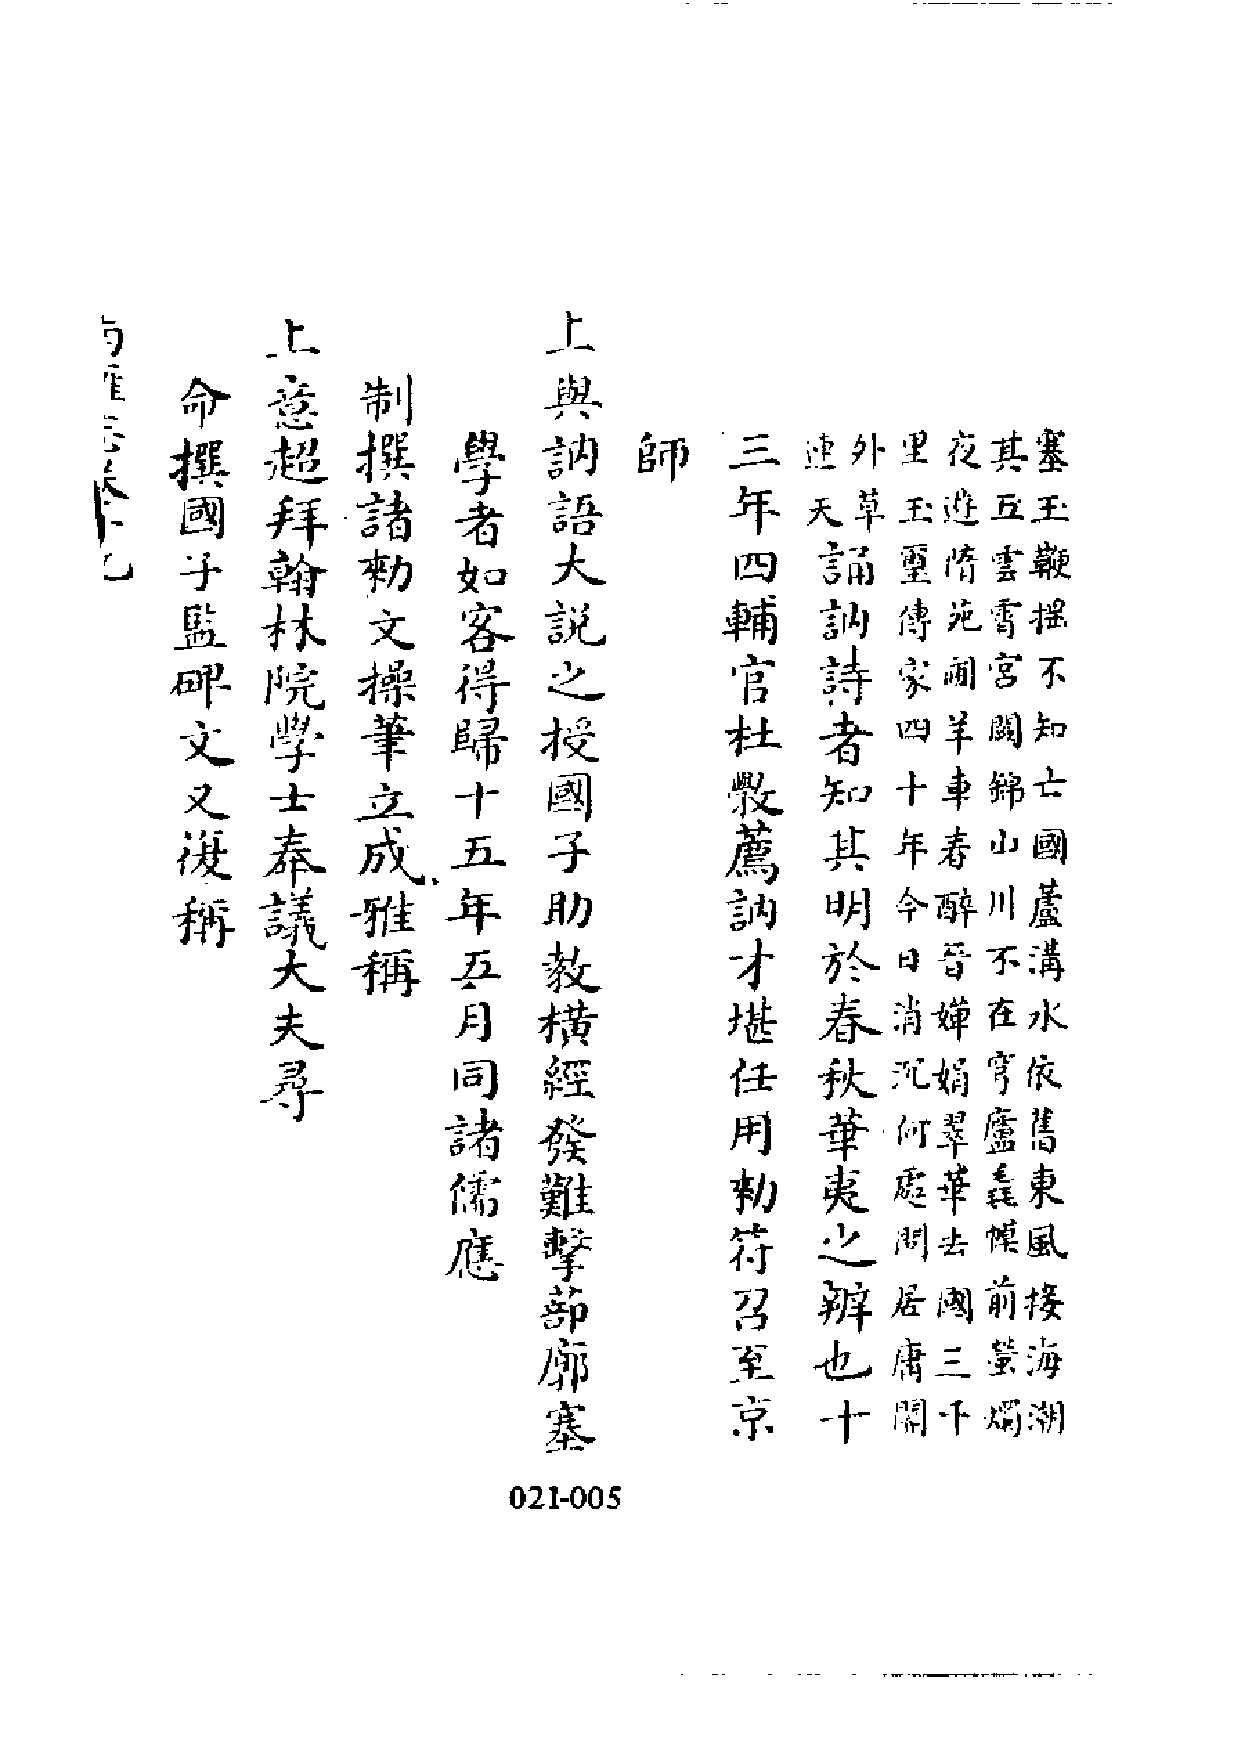 塞玉鞭揺不知亡國蘆溝水依舊東風接海潮
其五雲霄宮闕錦山川不在穹廬毳幙前螢燭
夜遊隋苑圃羊車春醉晉嬋娟翠華去國三千
里玉璽傳家四十年今日消沉何處問居庸關
外草
連天
誦訥詩者知其明於春秋華夷之辨也十
三年四輔官杜斅薦訥才堪任用勑符召至京
師
上與訥語大説之授國子助教橫經發難擊蔀廓塞
學者如客得歸十五年五月同諸儒應
制撰諸勑文操筆立成雅稱
上意超拜翰林院學士奉議大夫尋
命撰國子監碑文又復稱
021-005